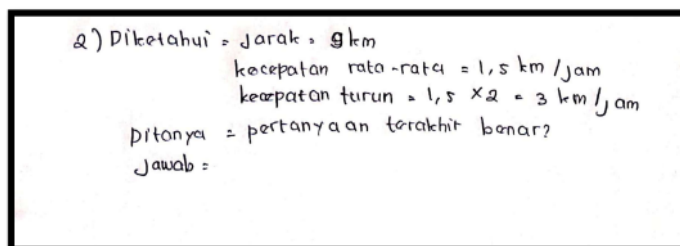 2) Diketahui = Jarak = 9 km
kecepatan rata-rata = 1,5 km/jam
kecepatan turun = 1,5 x 2 = 3 km/jam
Ditanya = pertanyaan terakhir benar?
Jawab =